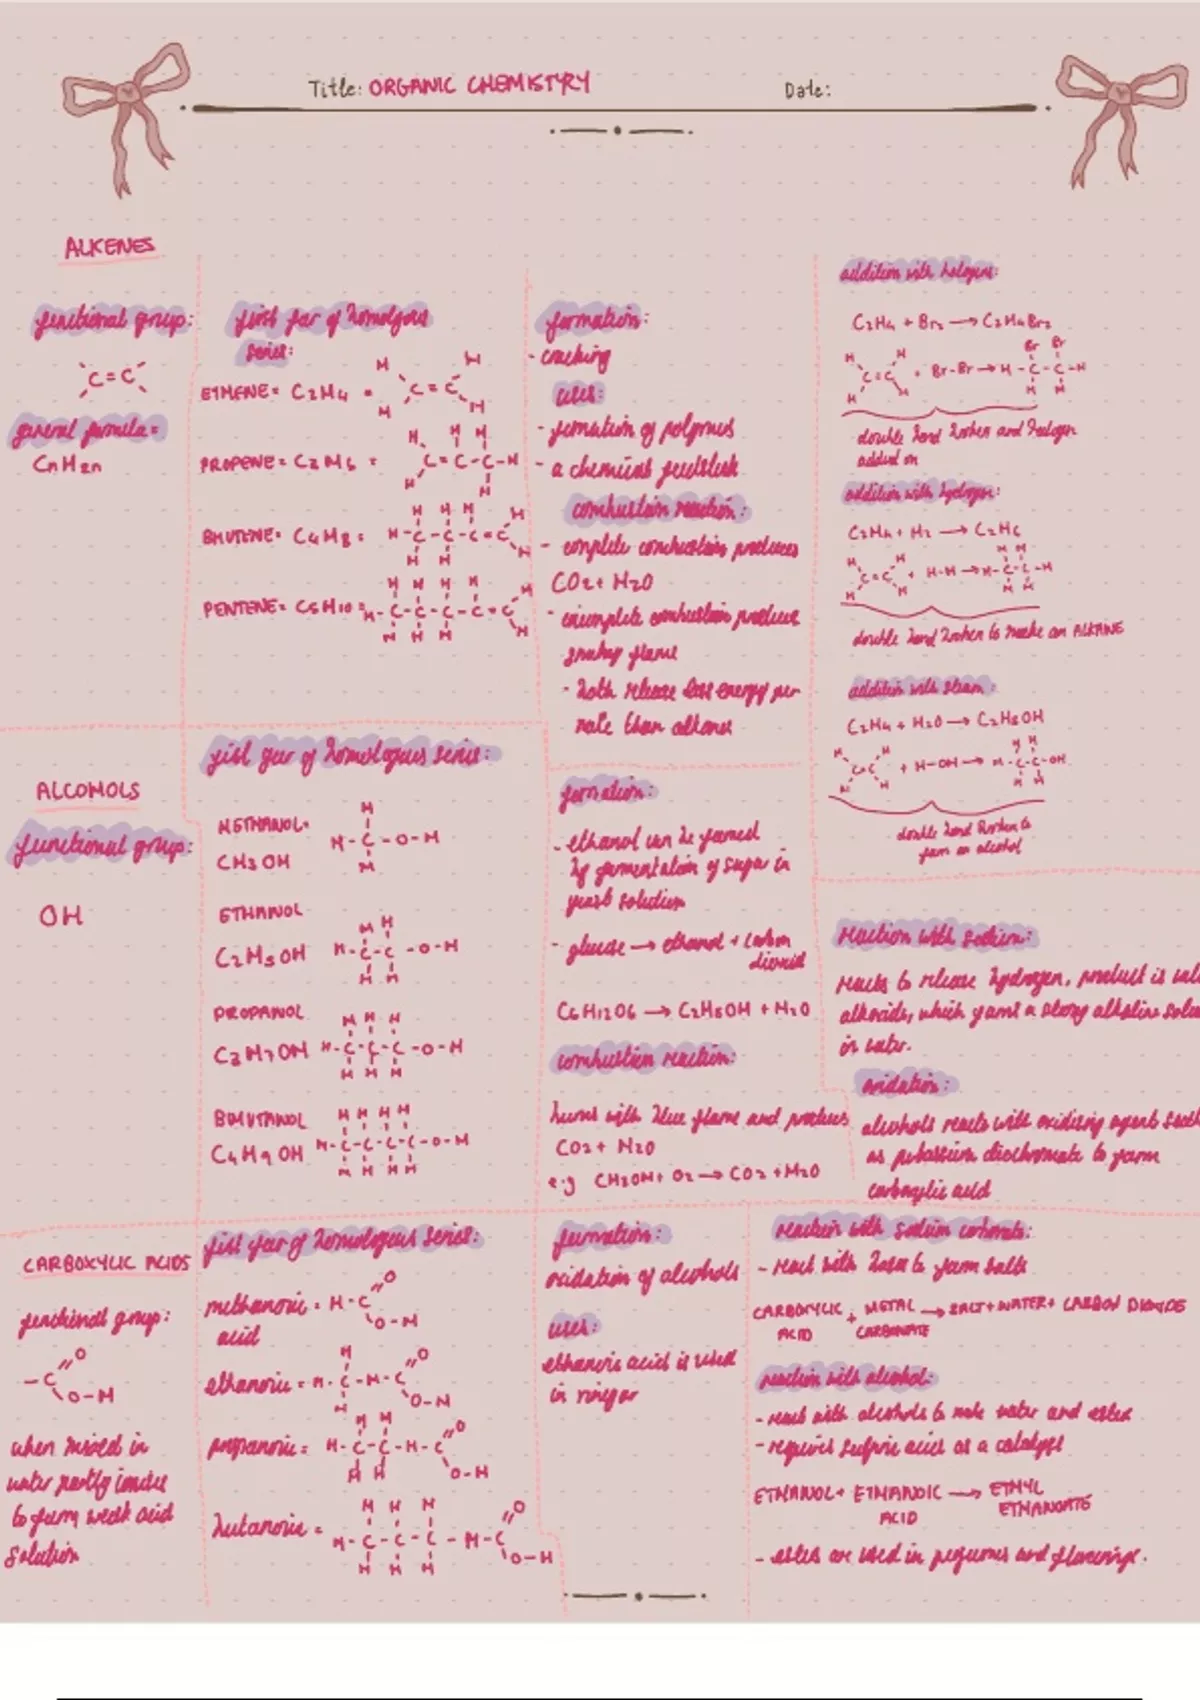 Title: ORGANIC CHEMISTRY
Date:
ALKENES
functional group:
C=C
general formula=
CnH2n
first four of homologous
series:
ETHENE= C2H4 =
PROPENE= C3H6 =
BHUTENE= C4H8 =
PENTENE= C5H10 =
formation:
- cracking
uses:
- formation of polymers
- a chemical feedstock
combustion reaction:
- complete combustion produces
CO2+ H2O
- incomplete combustion produce
smokey flame
- both release less energy per
mole than alkanes
addition with halogens:
C2H4 + Br2 → C2H4Br2
double bond broken and halogen
added on
addition with hydrogen:
C2H4 + H2 → C2H6
double bond broken to make an ALKANE
addition with steam:
C2H4 + H2O → C2H5OH
double bond broken to
form an alcohol
ALCOHOLS
functional group:
OH
first four of homologous series:
METHANOL=
CH3OH
ETHANOL
C2H5OH
PROPANOL
C3H7OH
BHUTANOL
C4H9OH
formation:
- ethanol can be formed
by fermentation of sugar in
yeast solution
- glucose → ethanol + carbon
dioxide
C6H12O6 → C2H5OH + H2O
combustion reaction:
burns with blue flame and produces
CO2+ H2O
e.g CH3OH+ O2 → CO2 + H2O
reaction with sodium:
reacts to release hydrogen, product is
which forms a strong alkaline
in water.
oxidation:
alcohols reacts with oxidising agent such
as potassium diochromate to form
carboxylic acid
CARBOXYLIC ACIDS
functional group:
when mixed in
water partly ionises
to form weak acid
solution
first four of homologous series:
methanoic =
acid
ethanoic =
propanoic =
butanoic =
formation:
oxidation of alcohols
uses:
ethanoic acid is used
in vinegar
reaction with sodium carbonate:
- react with to form salts
CARBOXYLIC + METAL → SALT + WATER + CARBON DIOXIDE
ACID CARBONATE
reaction with alcohol:
- react with alcohols to make water and ester
- requires sulfuric acid as a catalyst
ETHANOL + ETHANOIC → ETHYL
ACID ETHANOATE
- esters are used in perfumes and flavourings.